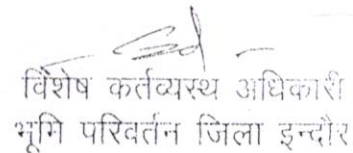 विशेष कर्तव्यस्थ अधिकारी
भूमि परिवर्तन जिला इन्दौर